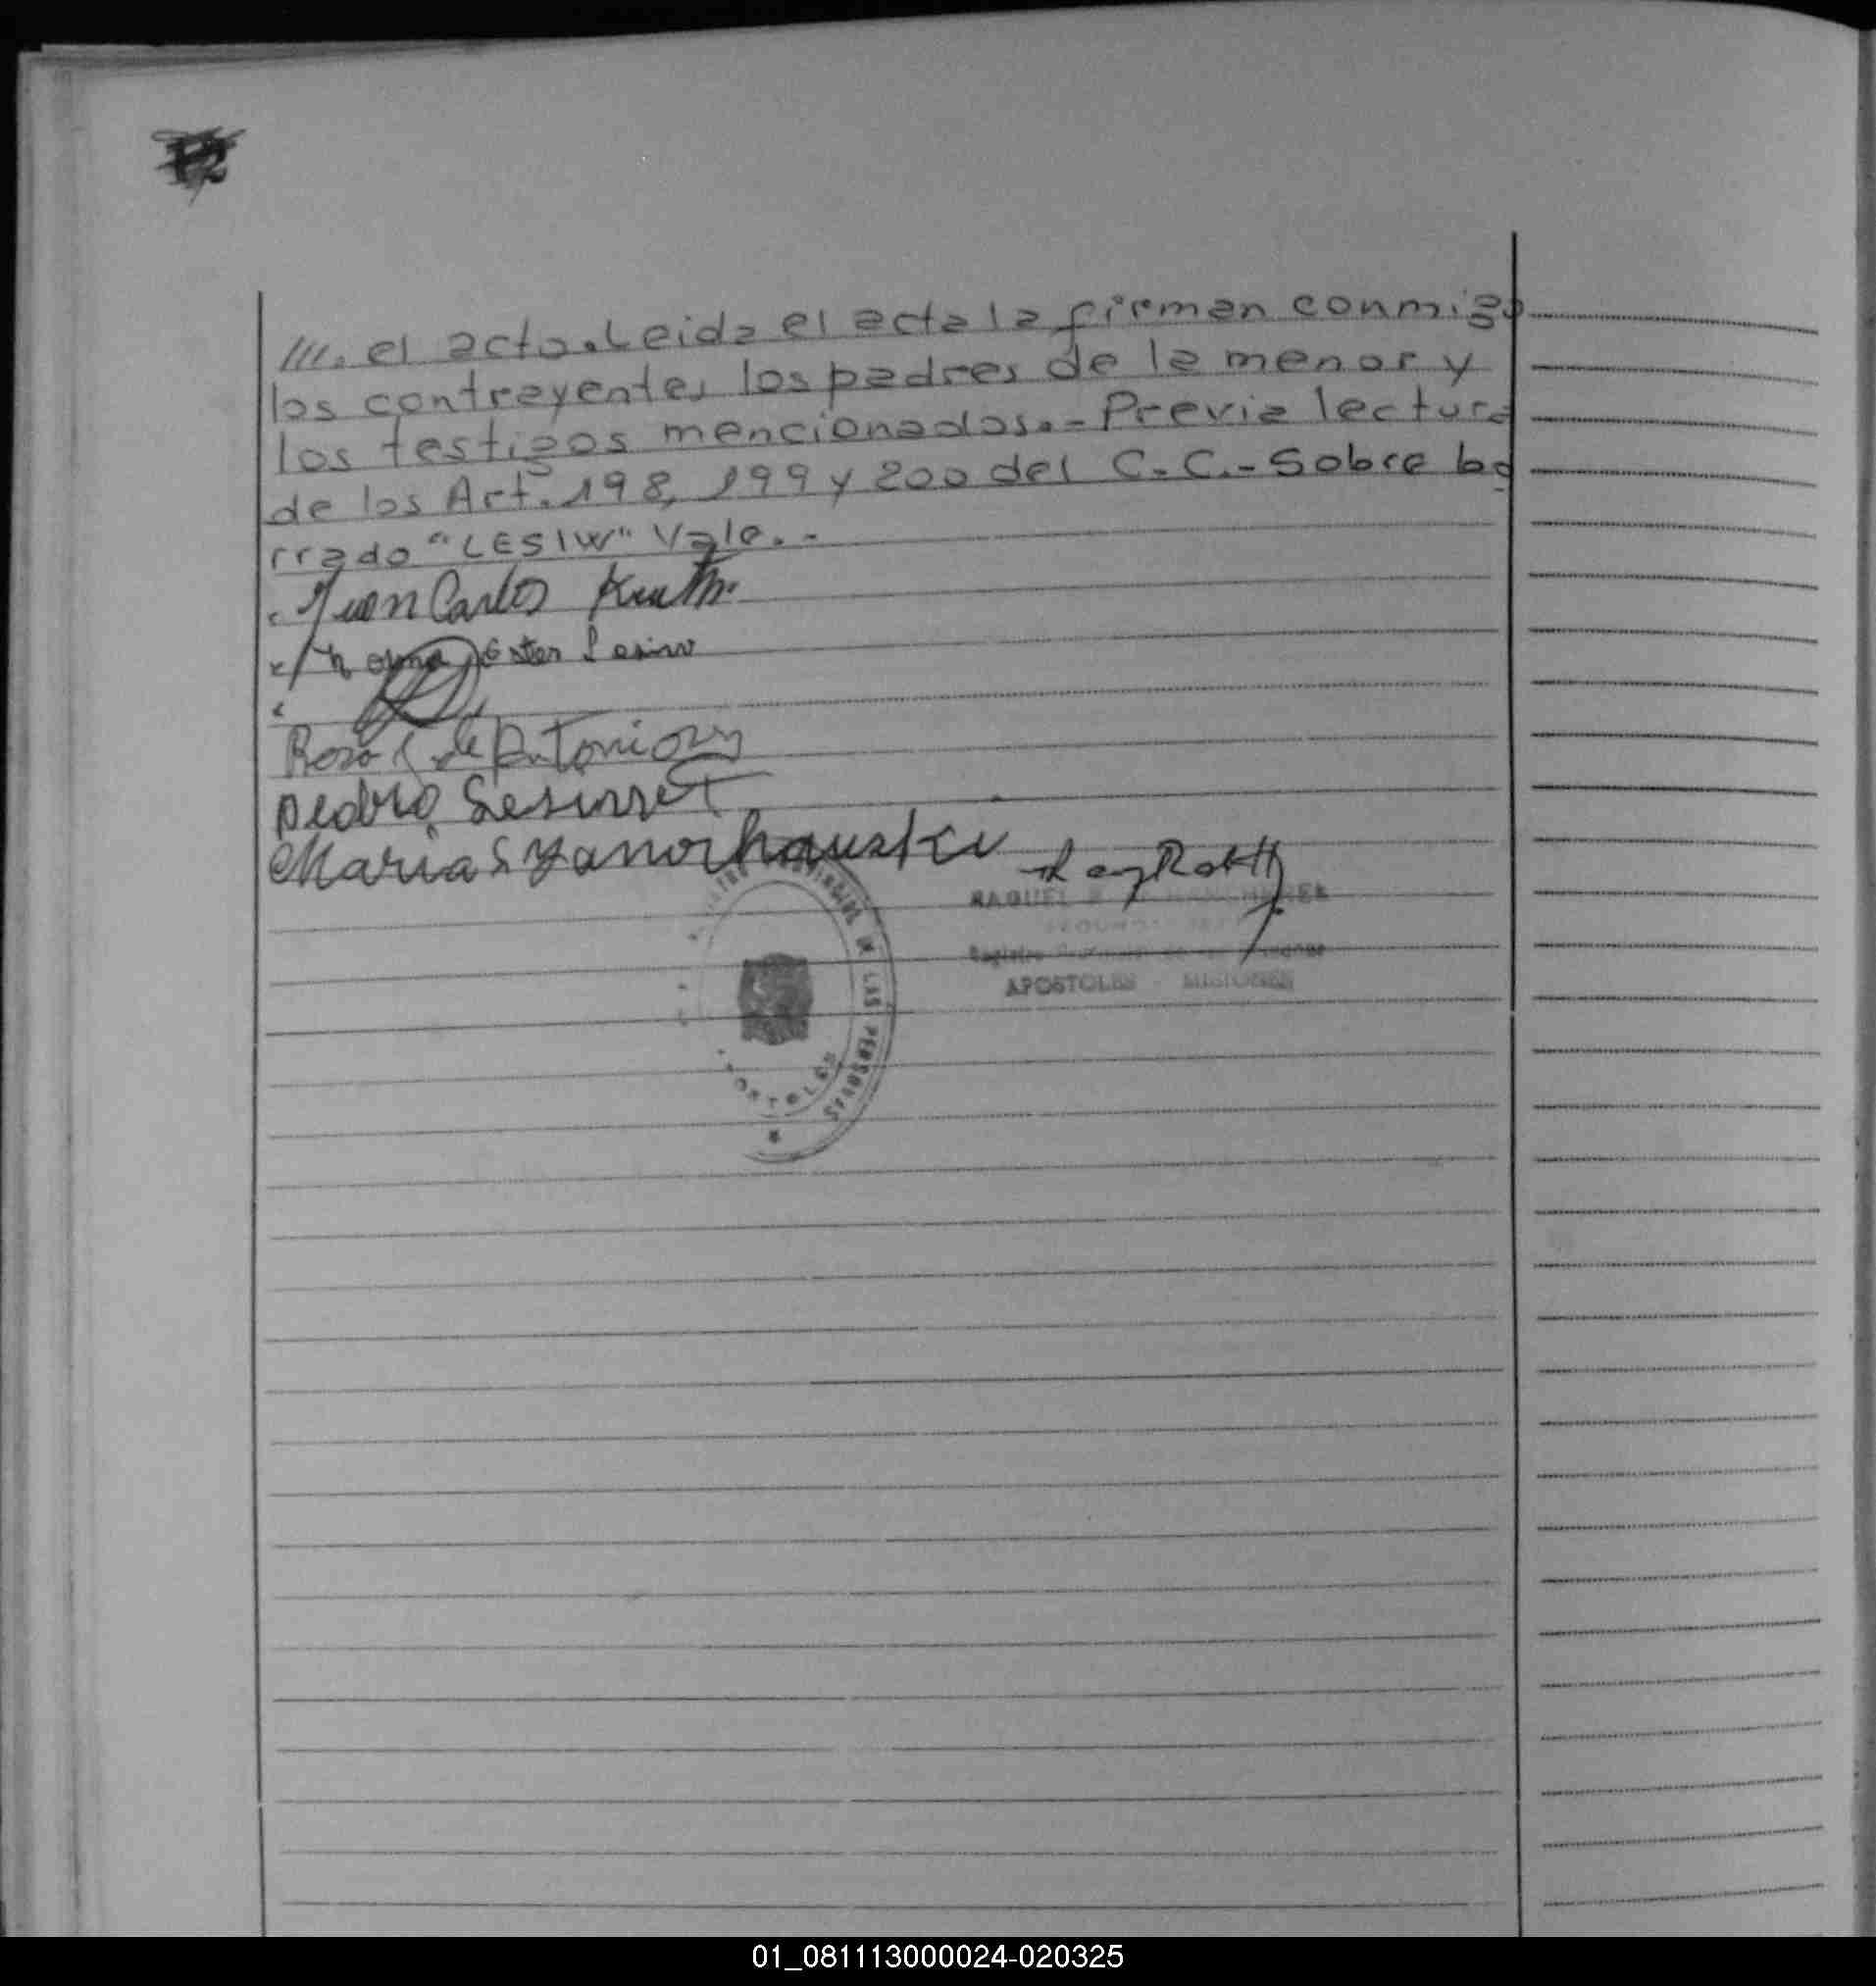 12
///. el acto. Leida el acta la firman conmigo
los contrayentes los padres de la menor y
los testigos mencionados.- Previa lectura
de los Art. 198, 199 y 200 del C.C.- Sobre bo
rrado "LESIW" Vale.-
Juan Carlos
Norma Ester Lesiw
Rosa de Antoniow
Pedro
Maria S Yanorhauski
RAQUEL
APOSTOLES - MISIONES
DE LAS PERSONAS
01_081113000024-020325